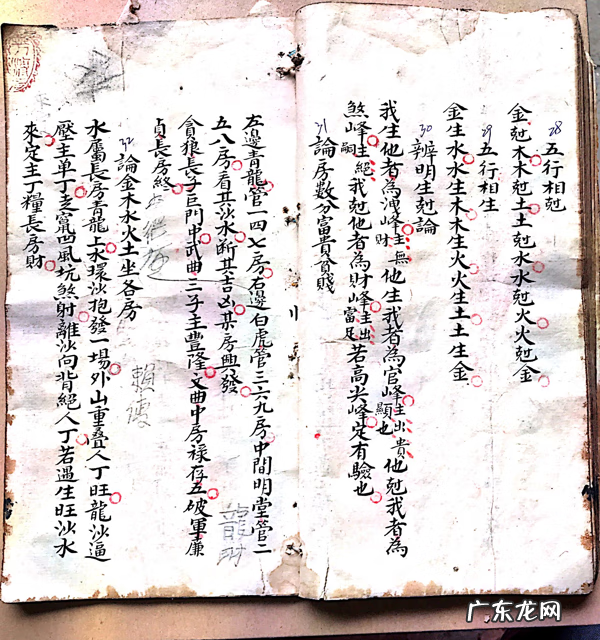 28
五行相尅
金尅木木尅土土尅水水尅火火尅金
29
五行相生
金生水水生木木生火火生土土生金
30
辨明生尅論
我生他者為洩峰主無財他生我者為官峰主出貴顯也他尅我者為
煞峰主絕嗣我尅他者為財峰主出富足若高尖峰定有驗也
31
論房數分富貴貧賤
左邊青龍管一四七房右邊白虎管三六九房中間明堂管二
五八房看其沙水斷其吉凶某房興發
貪狼長子巨門中武曲三子主豐隆文曲中房祿存五破軍廉
貞長房終
32
論金木水火土坐各房
水屬長房青龍上水環沙抱發一場外山重疊人丁旺龍沙逼
壓主单丁走竄凹風坑煞射離沙向背絕人丁若過生旺沙水
來定主丁糧長房財
廣东龙网